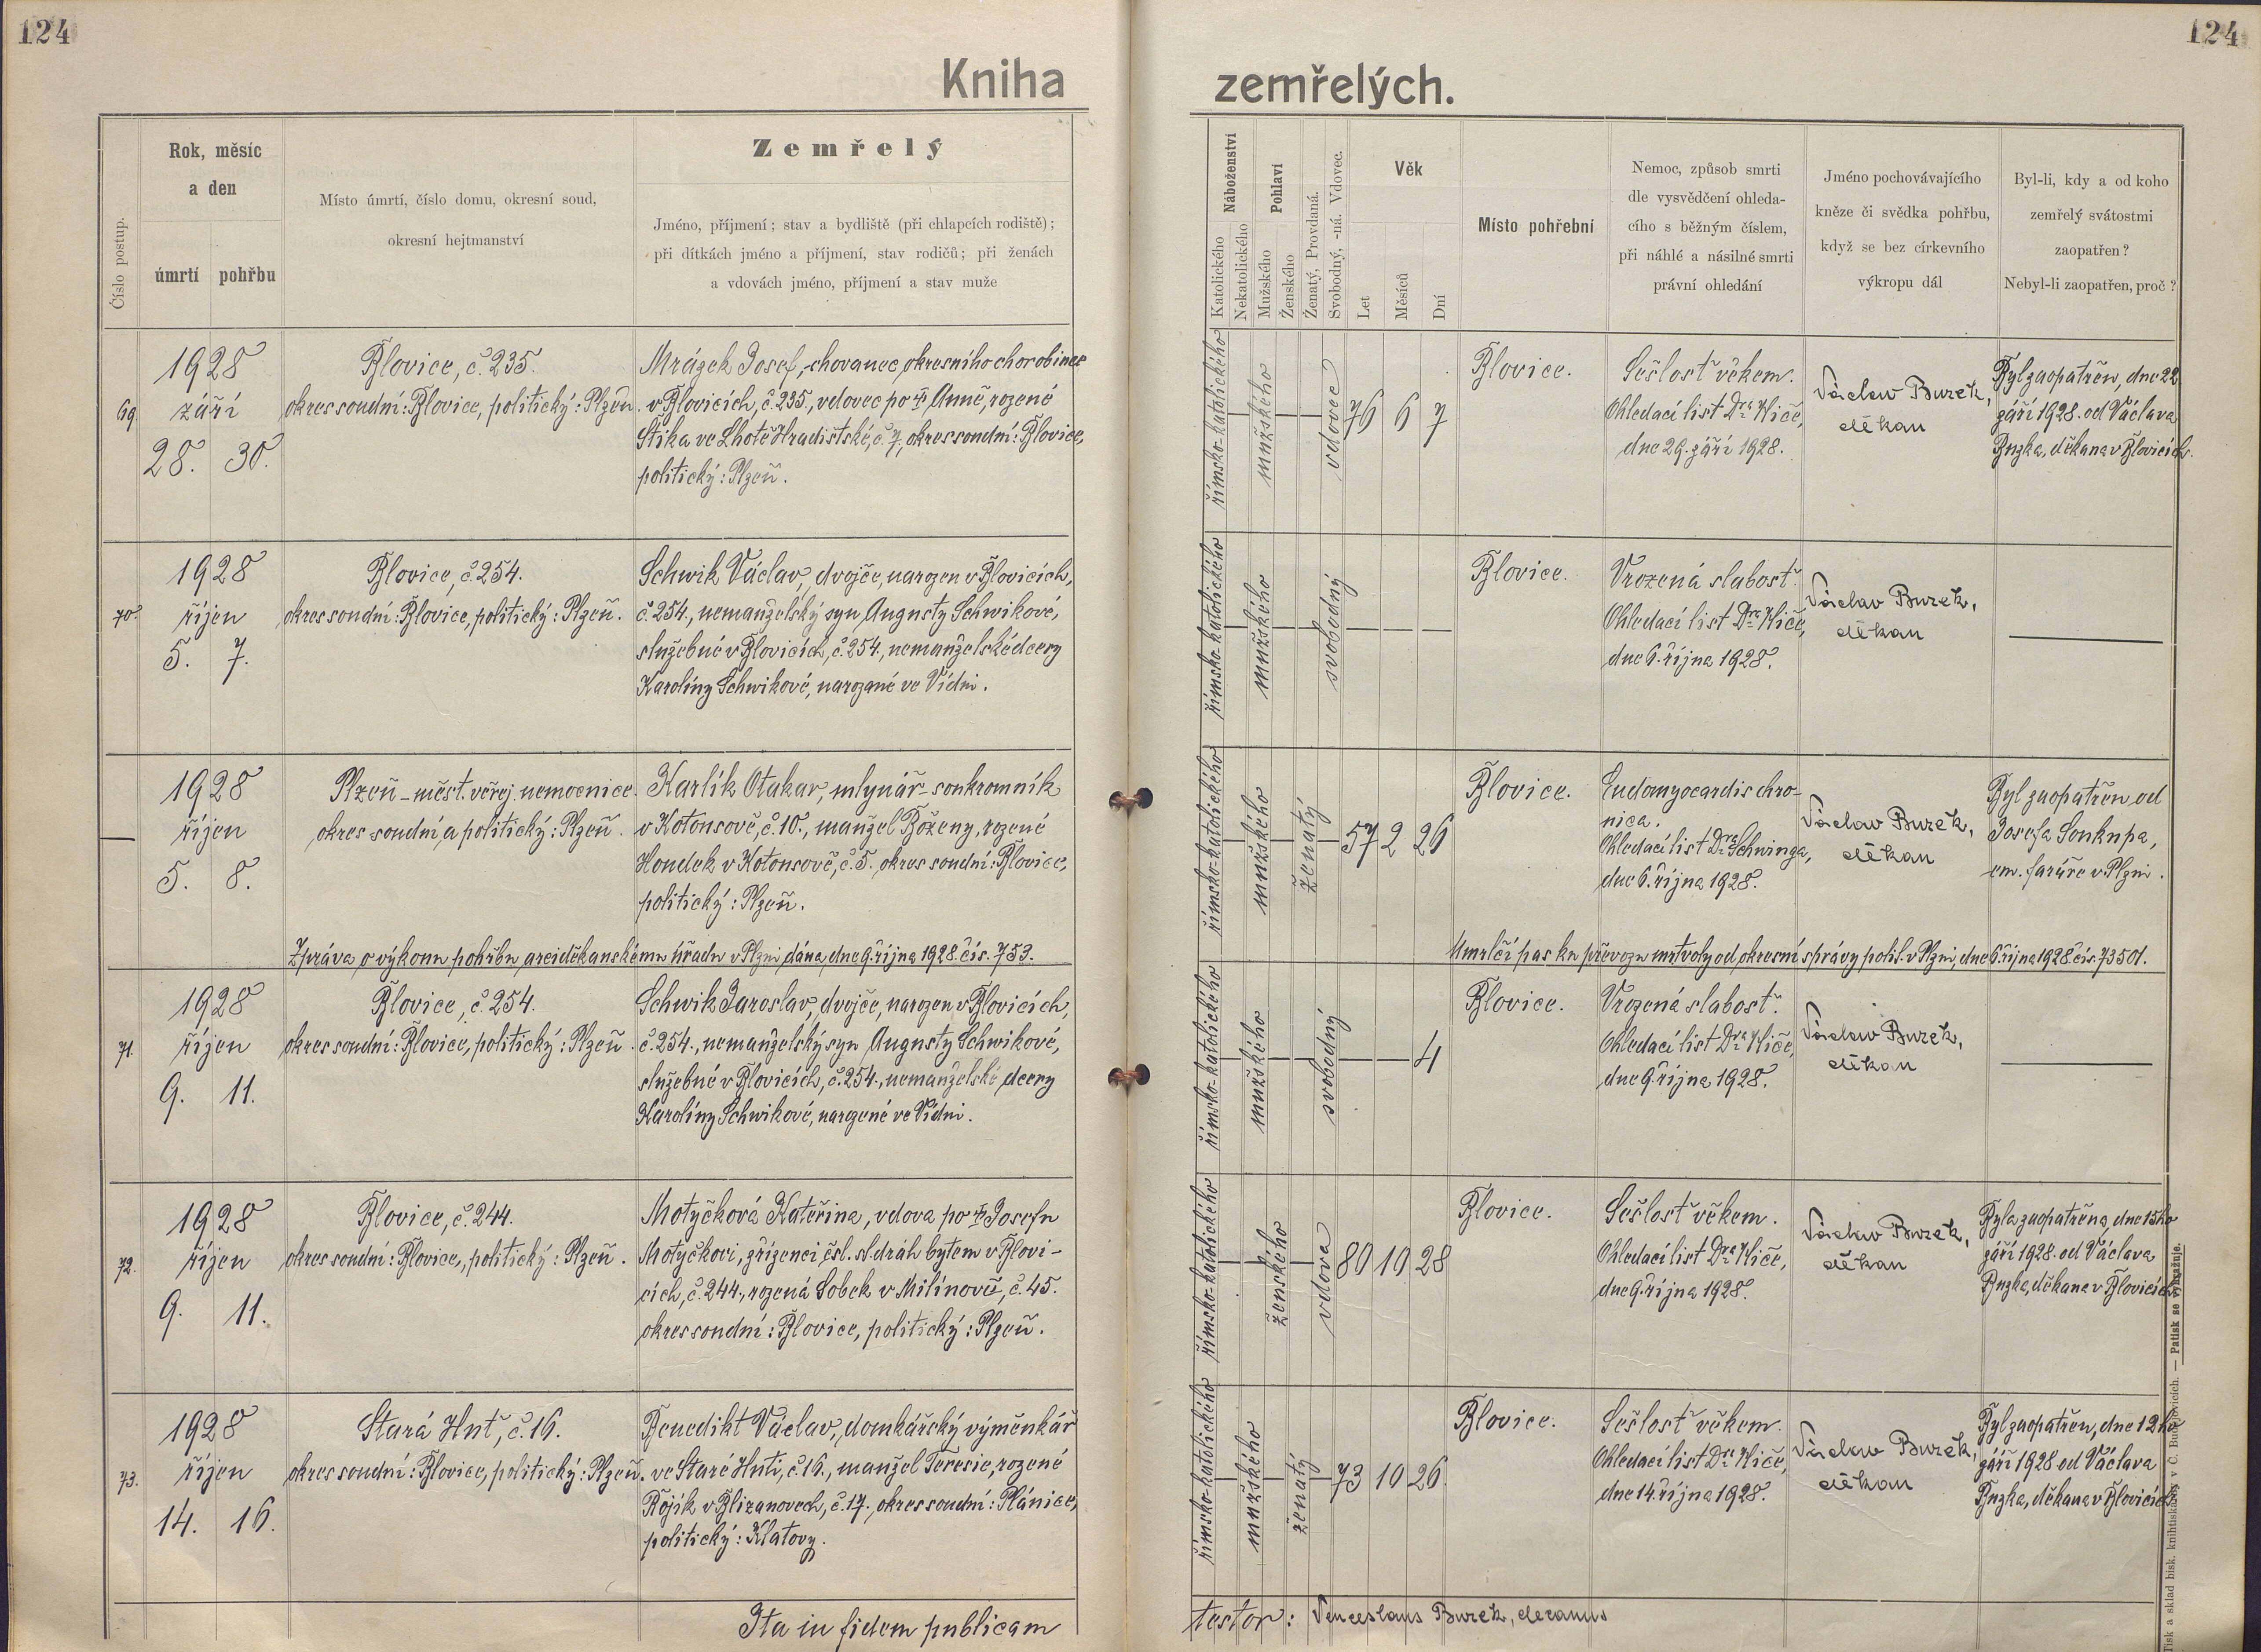 124
124
Kniha
zemřelých.
Číslo postup.
Rok, měsíc
a den
úmrtí
pohřbu
Místo úmrtí, číslo domu, okresní soud,
okresní hejtmanství
Zemřelý
Jméno, příjmení; stav a bydliště (při chlapcích rodiště);
při dítkách jméno a příjmení, stav rodičů; při ženách
a vdovách jméno, příjmení a stav muže
Náboženství
Katolického
Nekatolického
Pohlaví
Mužského
Ženského
Ženatý, Provdaná.
Svobodný, -ná. Vdovec.
Věk
Let
Měsíců
Dní
Místo pohřební
Nemoc, způsob smrti
dle vysvědčení ohleda-
cího s běžným číslem,
při náhlé a násilné smrti
právní ohledání
Jméno pochovávajícího
kněze či svědka pohřbu,
když se bez církevního
výkropu dál
Byl-li, kdy a od koho
zemřelý svátostmi
zaopatřen?
Nebyl-li zaopatřen, proč?
69.
1928
září
28. 30.
Blovice, č. 235.
okres soudní: Blovice, politický: Plzeň.
Mrázek Josef, chovanec okresního chorobince
v Blovicích, č. 235., vdovec po † Anně, rozené
Štika ve Lhotě Hradišťské, č. 7, okres soudní: Blovice,
politický: Plzeň.
římsko-katolického
mužského
vdovec
76 6 7
Blovice.
Sešlosť věkem.
Ohledací list Dra Kliče,
dne 29. září 1928.
Václav Buzek,
děkan
Byl zaopatřen, dne 22
září 1928. od Václava
Buzka, děkana v Blovicích.
70.
1928
říjen
5. 7.
Blovice, č. 254.
okres soudní: Blovice, politický: Plzeň.
Schwik Václav, dvojče, narozen v Blovicích,
č. 254., nemanželský syn Augusty Schwikové,
služebné v Blovicích, č. 254., nemanželské dcery
Karolíny Schwikové, narozané ve Vídni.
římsko-katolického
mužského
svobodný
Blovice.
Vrozená slabosť.
Ohledací list Dra Kliče,
dne 6. října 1928.
Václav Buzek,
děkan
1928
říjen
5. 8.
Plzeň - měst. veřej. nemocnice.
okres soudní a politický: Plzeň.
Karlík Otakar, mlynář - soukromník
v Kotousově, č. 10., manžel Boženy, rozené
Houdek v Kotousově, č. 5. okres soudní: Blovice,
politický: Plzeň.
římsko-katolického
mužského
ženatý
57 2 26
Blovice.
Endomyocardis chro-
nica.
Ohledací list Dra Schwinga,
dne 6. října 1928.
Václav Buzek,
děkan
Byl zaopatřen od
Josefa Soukupa,
em. faráře v Plzni.
Zpráva o výkonu pohřbu arciděkanskému úřadu v Plzni dána, dne 9. října 1928. čís. 753.
Umrlčí pas ku převozu mrtvoly od okresní správy polit. v Plzni, dne 6. října 1928 čís. 73501.
71.
1928
říjen
9. 11.
Blovice, č. 254.
okres soudní: Blovice, politický: Plzeň.
Schwik Jaroslav, dvojče, narozen v Blovicích,
č. 254., nemanželský syn Augusty Schwikové,
služebné v Blovicích, č. 254., nemanželské dcery
Karolíny Schwikové, narozené ve Vídni.
římsko-katolického
mužského
svobodný
4
Blovice.
Vrozená slabosť.
Ohledací list Dra Kliče,
dne 9. října 1928.
Václav Buzek,
děkan
72.
1928
říjen
9. 11.
Blovice, č. 244.
okres soudní: Blovice, politický: Plzeň.
Motyčková Kateřina, vdova po † Josefu
Motyčkovi, zřízenci čsl. st. dráh bytem v Blovi-
cích, č. 244., rozená Sobek v Milínově, č. 45.
okres soudní: Blovice, politický: Plzeň.
římsko-katolického
ženského
vdova
80 10 28
Blovice.
Sešlosť věkem.
Ohledací list Dra Kliče,
dne 9. října 1928.
Václav Buzek,
děkan
Byla zaopatřena, dne 15ho
září 1928. od Václava
Buzka, děkana v Blovicích
73.
1928
říjen
14. 16.
Stará Huť, č. 16.
okres soudní: Blovice, politický: Plzeň.
Benedikt Václav, domkářský výměnkář
ve Staré Huti, č. 16., manžel Teresie, rozené
Bojík v Blizanovech, č. 17., okres soudní: Plánice,
politický: Klatovy.
římsko-katolického
mužského
ženatý
73 10 26.
Blovice.
Sešlosť věkem.
Ohledací list Dra Kliče,
dne 14. října 1928.
Václav Buzek,
děkan
Byl zaopatřen, dne 12ho
září 1928 od Václava
Buzka, děkana v Blovicích
Ita in fidem publicam
testor: Venceslaus Buzek, decanus
Tisk a sklad bisk. knihtiskárny v Č. Budějovicích. — Patisk se vyhražuje.